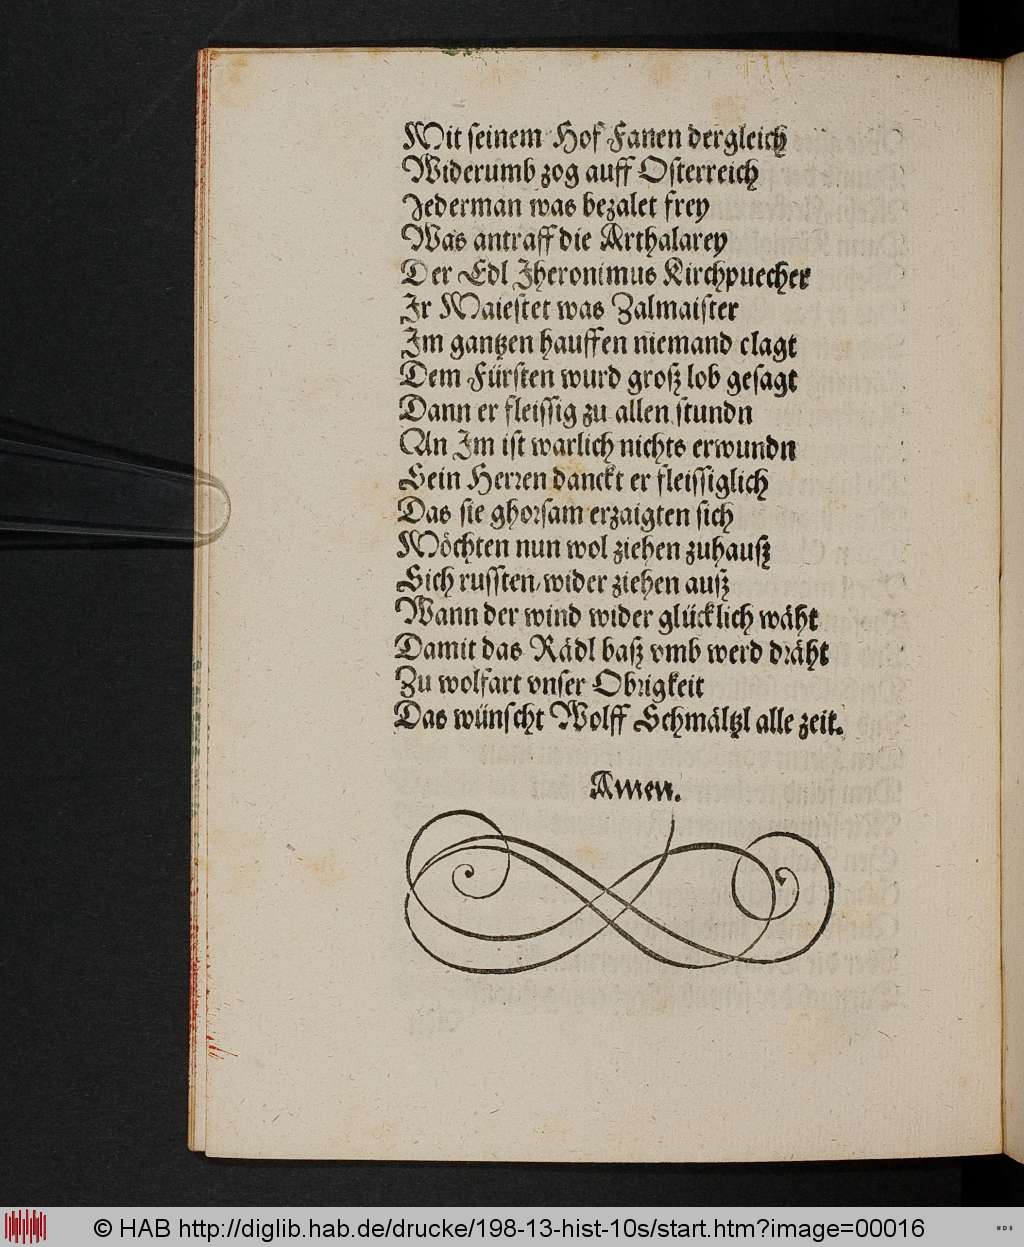 Mit seinem Hof Fanen dergleich
Widerumb zog auff Osterreich
Jederman was bezalet frey
Was antraff die Arthalarey
Der Edl Jheronimus Kirchpuecher
Ir Maiestet was Zalmaister
Im gantzen hauffen niemand clagt
Dem Fürsten wurd groß lob gesagt
Dann er fleissig zu allen stundn
An Im ist warlich nichts erwundn
Sein Herren danckt er fleissiglich
Das sie ghorsam erzaigten sich
Möchten nun wol ziehen zuhauß
Sich russten/wider ziehen auß
Wann der wind wider glücklich wäht
Damit das Rädl baß vmb werd dräht
Zu wolfart vnser Obrigkeit
Das wünscht Wolff Schmältzl alle zeit.
Amen.
© HAB http://diglib.hab.de/drucke/198-13-hist-10s/start.htm?image=00016
WDB